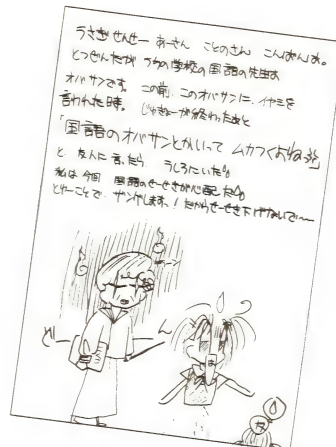 うさぎせんせー あーさん ことのさん こんばんわ。
とつぜんだが うちの学校の国語の先生は
オバサンです。この前、このオバサンに、イヤミを
言われた時。じゅぎょーが終わったあと
「国語のオバサンとかいって ムカつくよね」
と、友人に言ったら うしろにいた。
私は今回 国語のせーせきが心配だ。
とゆーことで、ザンゲします。だからせーせき下げないで〜
ど
ん